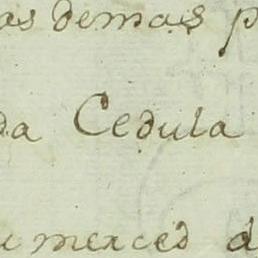 as demas p
da Cedula
merced d